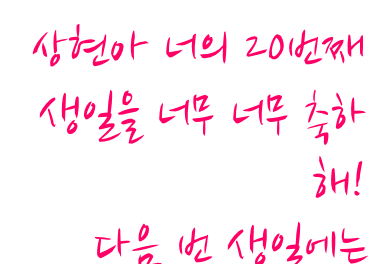 상현아 너의 20번째
생일을 너무 너무 축하
해!
다음 번 생일에는